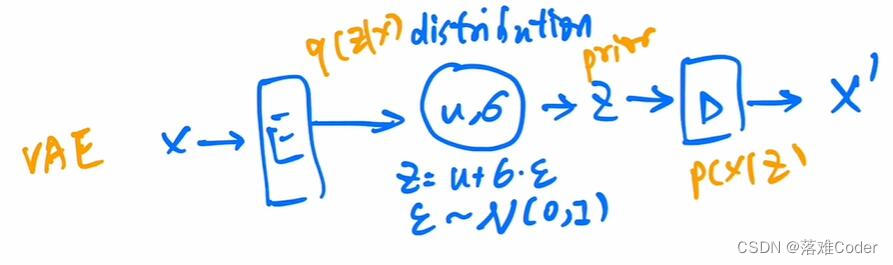 q(z|x) distribution
prior
VAE x → E → u,σ → z → D → x'
z = u + σ · ε
p(x|z)
ε ~ N(0,I)
CSDN @落难Coder